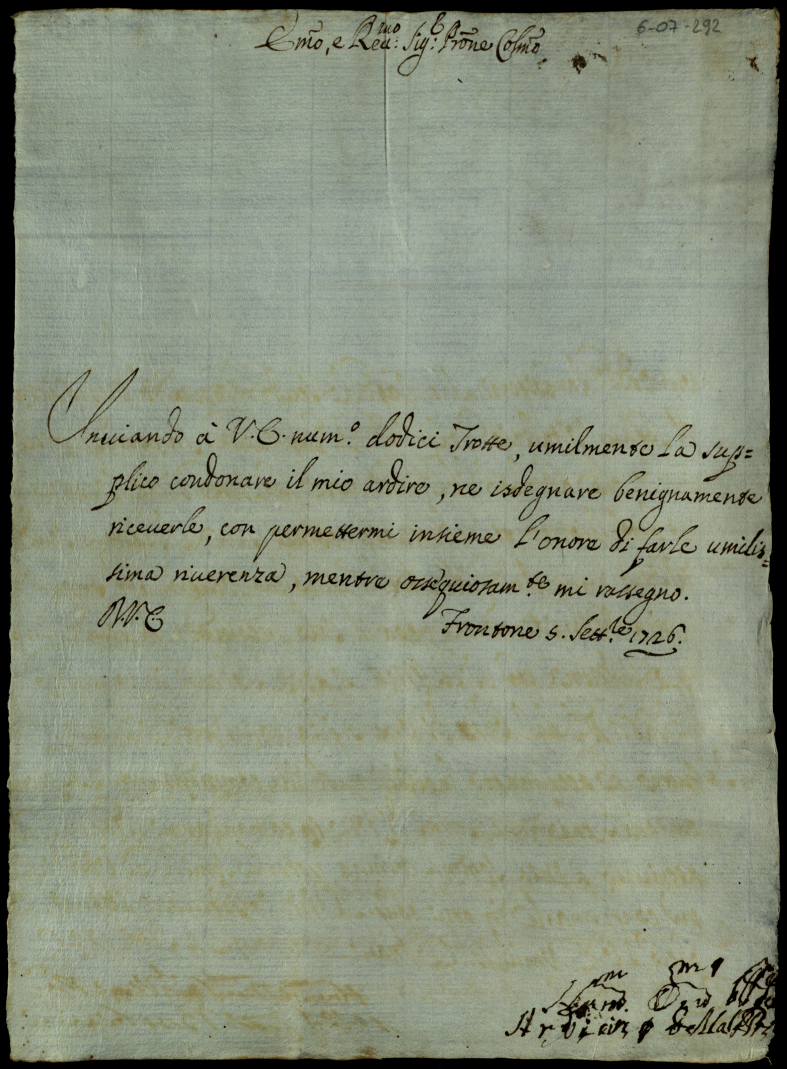 6-07-292
Emo, e Reu:mo Sig:r Prone Colmo
Inuiando à V.E. num.o dodici Trotte, umilmente la sup=
plico condonare il mio ardire, ne isdegnare benignamente
riceuerle, con permettermi insieme l'onore di farle umilis=
sima riuerenza, mentre ossequiosam.te mi rassegno.
D.V.E
Frontone 5. Sett.le 1726.